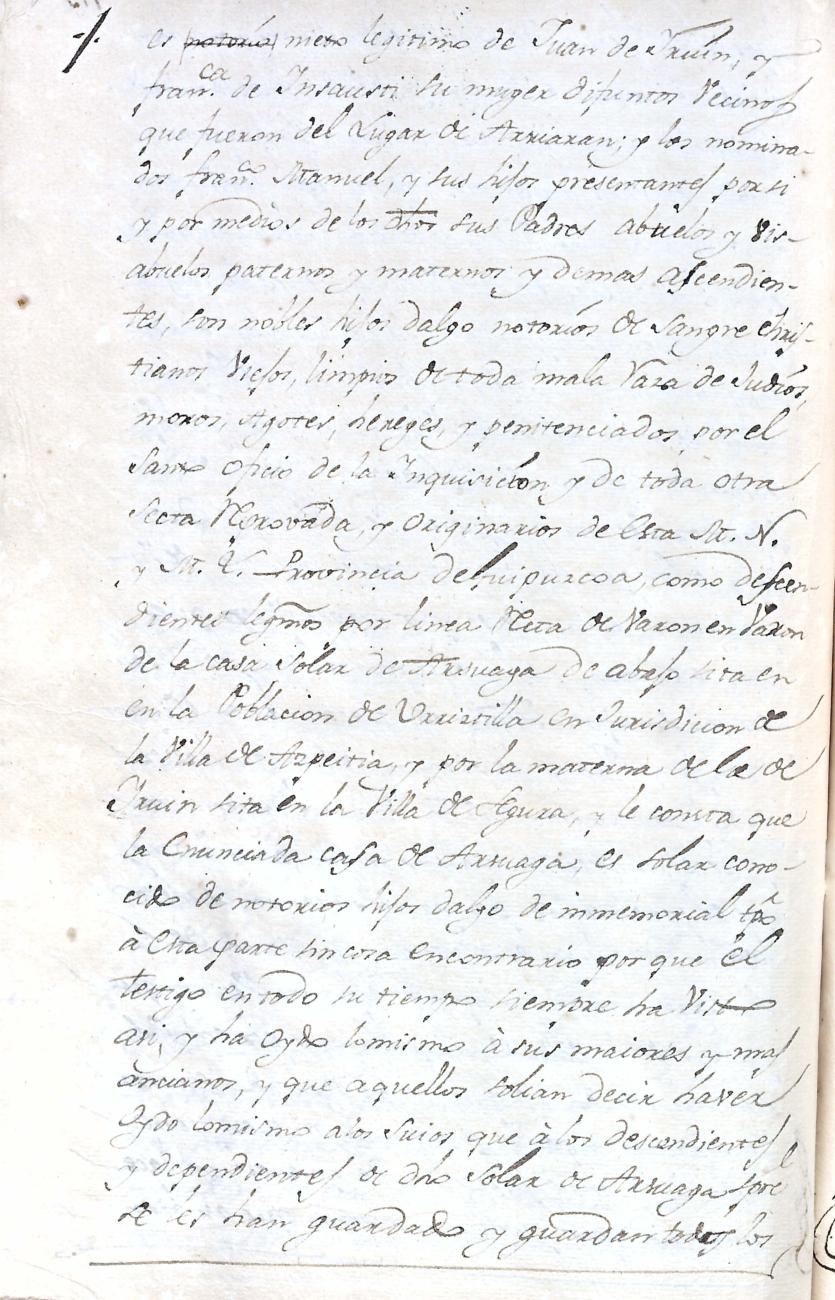 es notorio nieto legitimo de Juan de Iruin, y
fran.ca de Insausti su muger difuntos Vecinos
que fueron del Lugar de Arriaran; y los nomina-
dos fran.co Manuel, y sus hijos presentantes por si
y por medios de los dhos sus Padres abuelos y Vis-
abuelos paternos y maternos y demas ascendien-
tes, son nobles hijos dalgo notorios de sangre chris-
tianos Viejos, limpios de toda mala raza de Judios,
moros, Agotes, hereges, y penitenciados por el
Santo Oficio de la Inquisicion y de toda otra
Secta Reprovada, y Originarios de Esta M. N.
y M. L. Provincia de Guipuzcoa, como descen-
dientes legmos por linea Recta de Varon en Varon
de la casa Solar de Arsuaga de abajo sita en
en la Poblacion de Urristilla en Jurisdicion de
la Villa de Azpeitia, y por la materna de la de
Iruin sita en la Villa de Segura, y le consta que
la Enunciada casa de Arsuaga, es solar cono-
cido de notorios hijos dalgo de inmemorial tpo
à Esta parte sin cosa en contrario por que el
testigo en todo su tiempo siempre ha Visto
asi, y ha Oydo lo mismo à sus maiores y mas
àncianos, y que aquellos solian decir haver
Oydo lo mismo a los suios que à los descendientes
y dependientes de dho Solar de Arsuaga spre
se les han guardado y guardan todos los